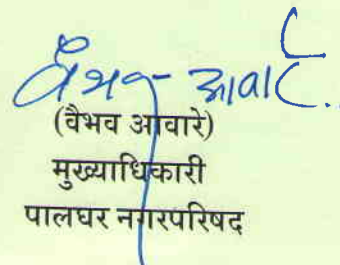 वैभव आवारे
(वैभव आवारे)
मुख्याधिकारी
पालघर नगरपरिषद